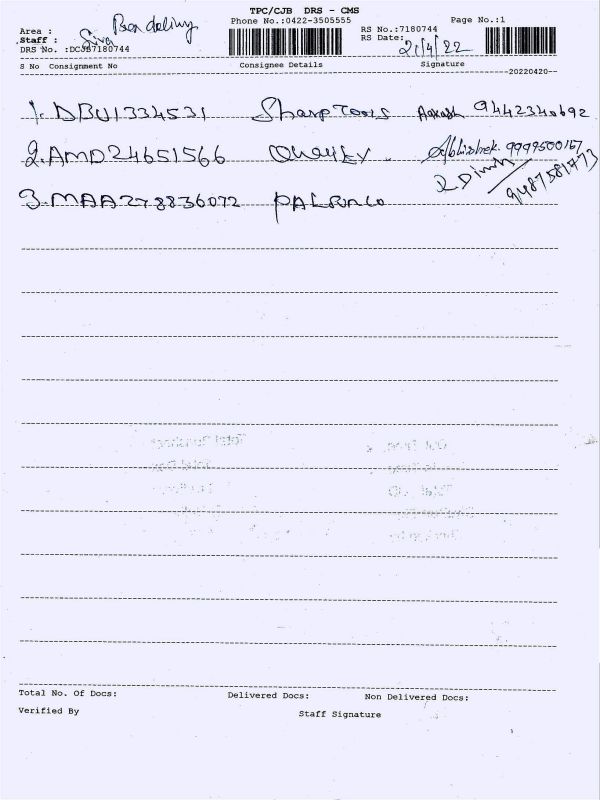 TPC/CJB DRS - CMS
Phone No.:0422-3505555 Page No.:1
Area :
Staff : Siva
RS No.:7180744
RS Date: 21/4/22
DRS No. :DCJB7180744
S No Consignment No Consignee Details Signature
20220420
1. DBU1334531 Sharp Tools Aakash 9442340692
2. AMD24651566 Abhishek. 9999500167
3. MAA278836072 9487581773
Total No. Of Docs: Delivered Docs: Non Delivered Docs:
Verified By Staff Signature